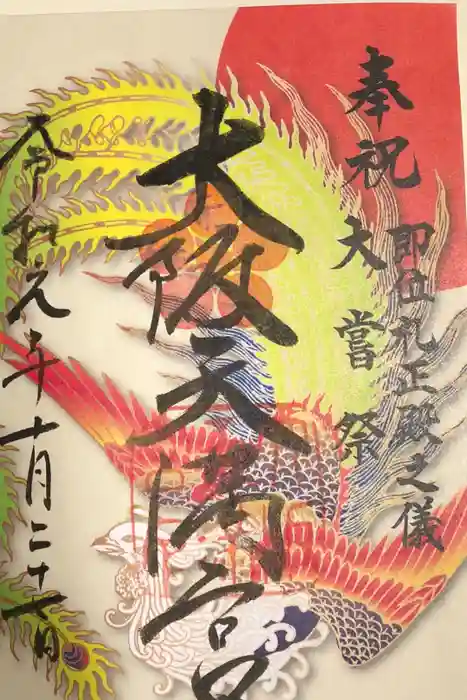 奉祝
即位礼正殿之儀
大嘗祭
大阪天満宮
令和元年十月二十一日